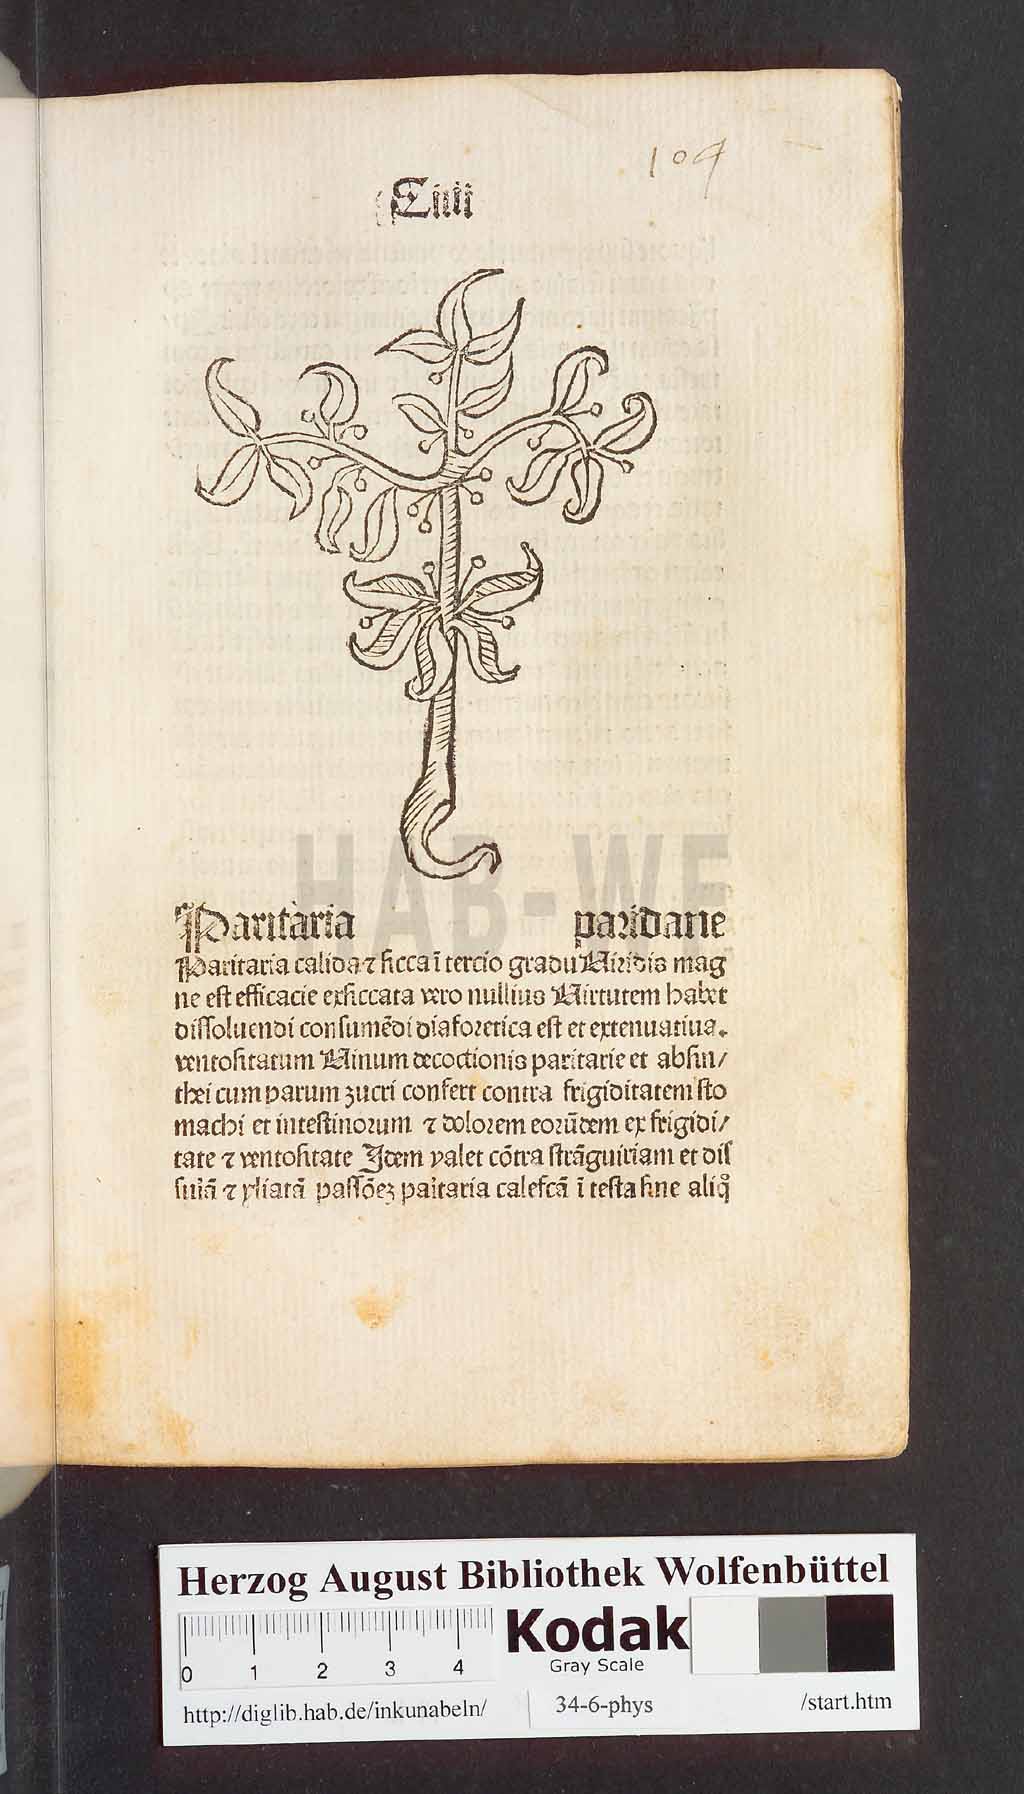 104
Ciiii
Paritaria paridarie
Paritaria calida ⁊ sicca ī tercio gradu Viridis mag
ne est efficacie exsiccata vero nullius Virtutem habet
dissoluendi consumēdi diaforetica est et extenuatiua.
ventositatum Vinum decoctionis paritarie et absin/
thei cum parum zucri confert contra frigiditatem sto
machi et intestinorum ⁊ dolorem eorūdem ex frigidi/
tate ⁊ ventositate Idem valet cōtra strāguiriam et dis
suiā ⁊ yliacā passōeʒ paritaria calefcā ī testa sine aliq̄
HAB-WF
Herzog August Bibliothek Wolfenbüttel
0 1 2 3 4
Kodak
Gray Scale
http://diglib.hab.de/inkunabeln/ 34-6-phys /start.htm